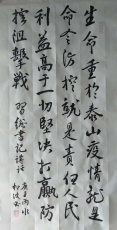 生命重于泰山疫情就是
命令防控就是责任人民
利益高于一切坚决打赢防
控阻擊戰 習総书记講话
庚子雨水